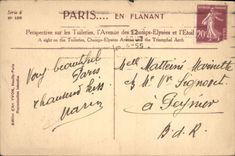 Série 6
Nº 109
PARIS.... EN FLANANT
Perspective sur les Tuileries, l'Avenue des Champs-Elysées et l'Etoile
A sight on the Tuileries, Champs-Elysées Avenue and the Triumphal Arch
20c
Very beautiful
Paris
thousand kiss
Marie
Mell Matteini Marinette
chez Mr Vve Signoret
à Peynier
B. d. R.